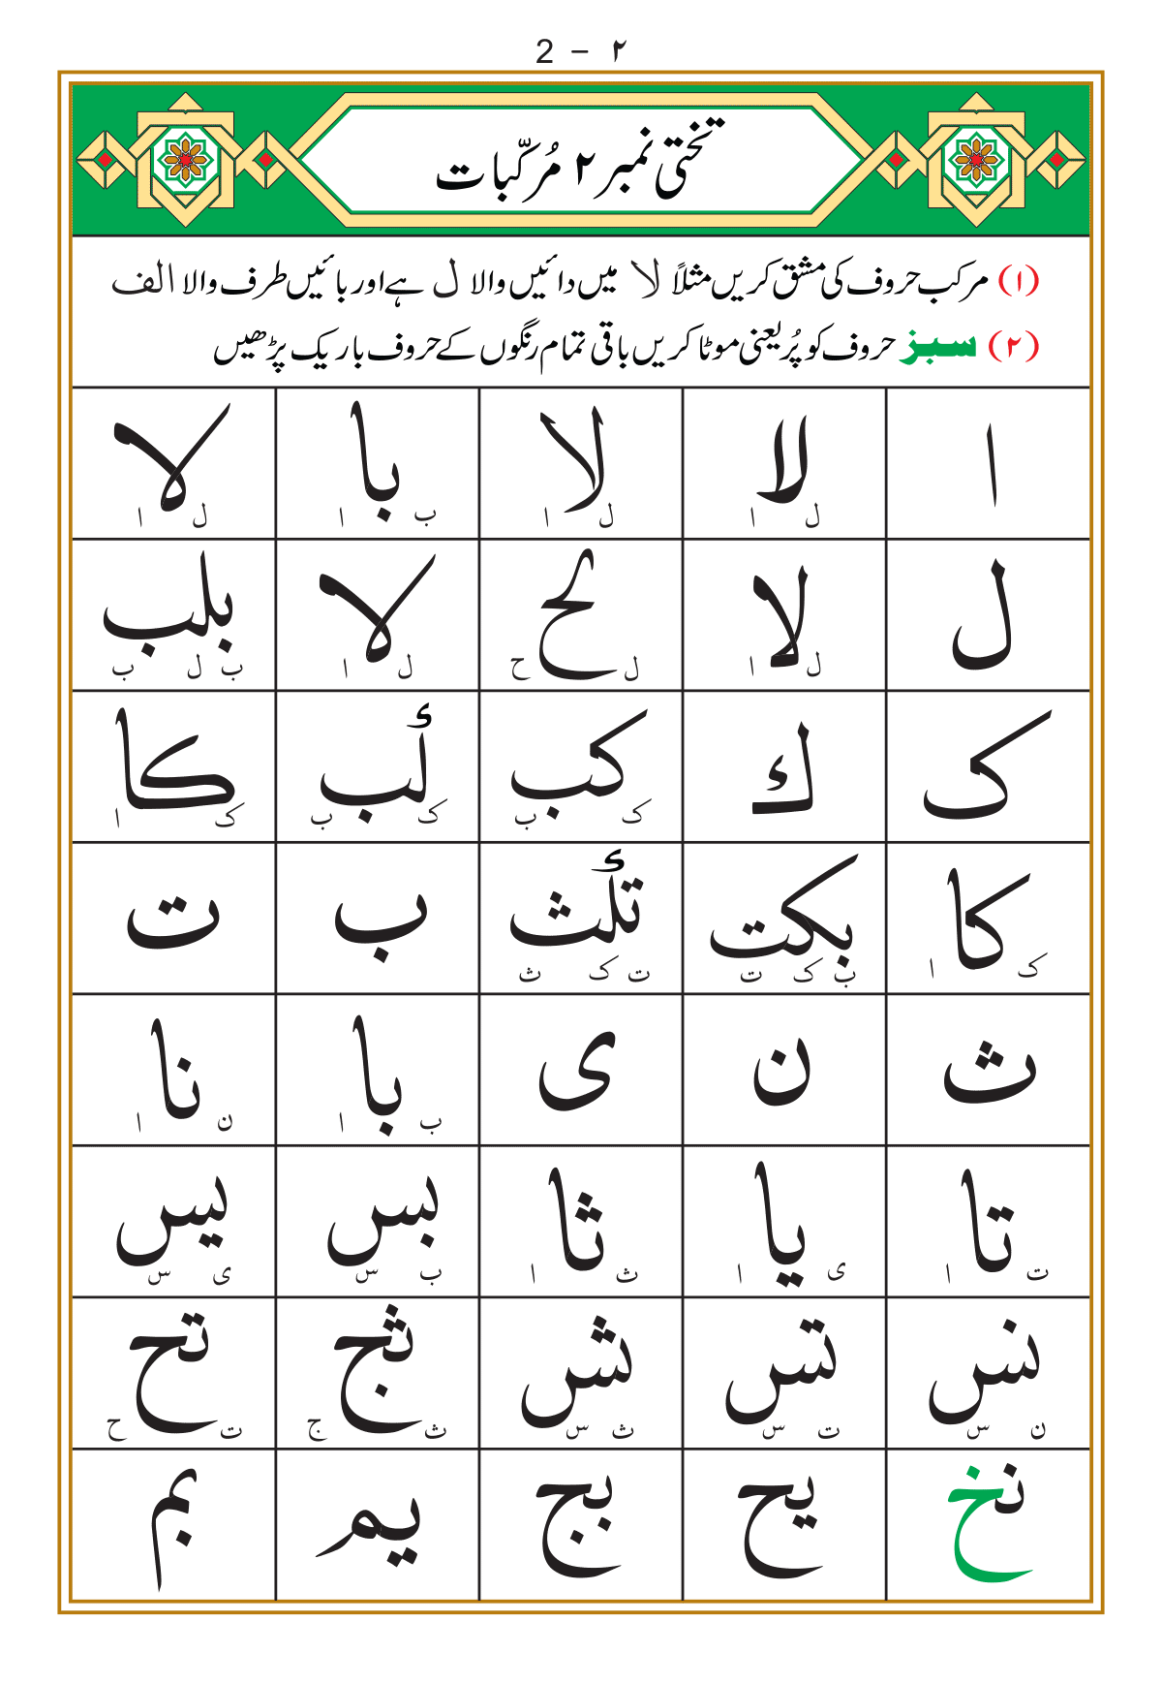 2 - ۲
تختی نمبر ۲ مُرکّبات
(۱) مرکب حروف کی مشق کریں مثلاً لا میں دائیں والا ل ہے اور بائیں طرف والا الف
(۲) سبز حروف کو پُر یعنی موٹا کریں باقی تمام رنگوں کے حروف باریک پڑھیں
ا لا لا با لا
ل ا ل ا ب ا ل ا
ل لا لح لا بلب
ل ا ل ح ل ا ب ل ب
ک ك کب كب کا
ک ب ک ب ک ا
کا بکت تكث ب ت
ک ا ب ک ت ت ک ث
ث ن ی با نا
ب ا ن ا
تا یا ثا بس یس
ت ا ی ا ث ا ب س ی س
نس تس ثس ثج تح
ن س ت س ث س ث ج ت ح
نخ یح بج یم بم